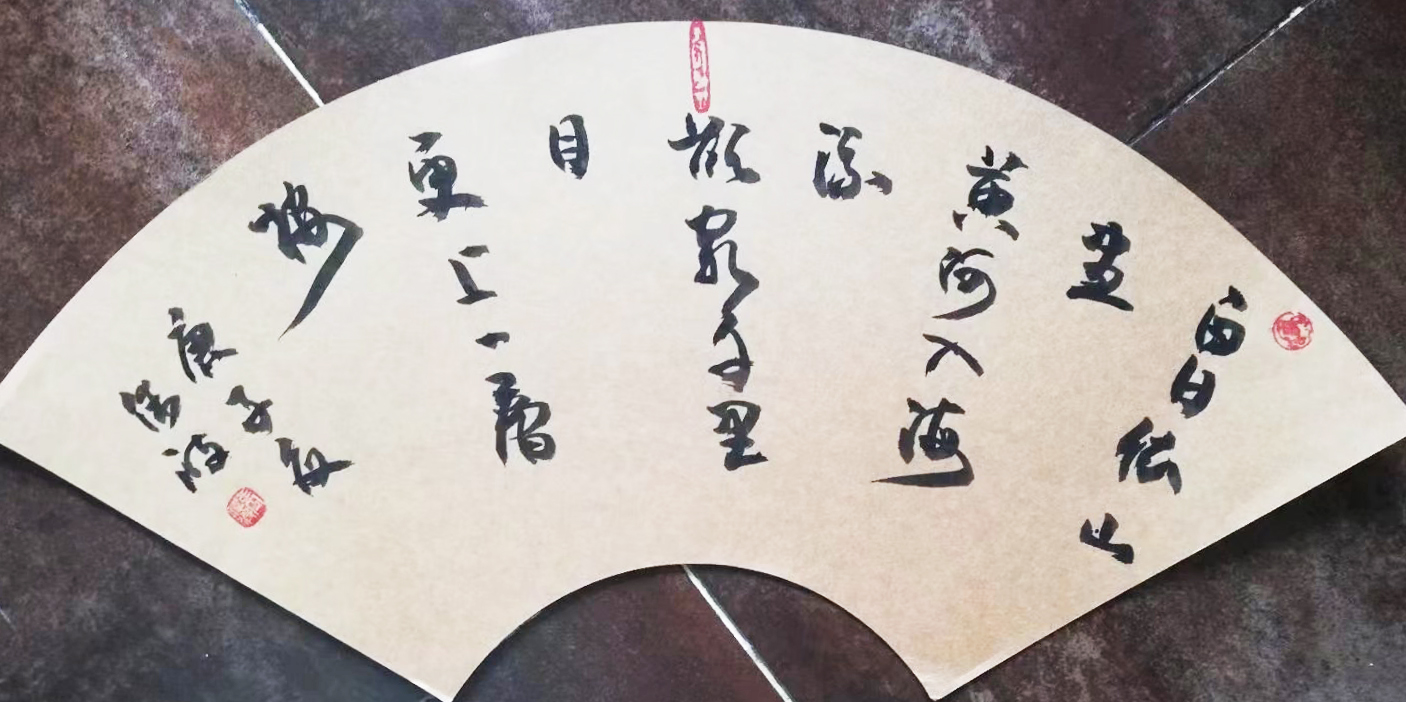 白日依山
盡
黄河入海
流
欲窮千里
目
更上一層
樓
庚子年